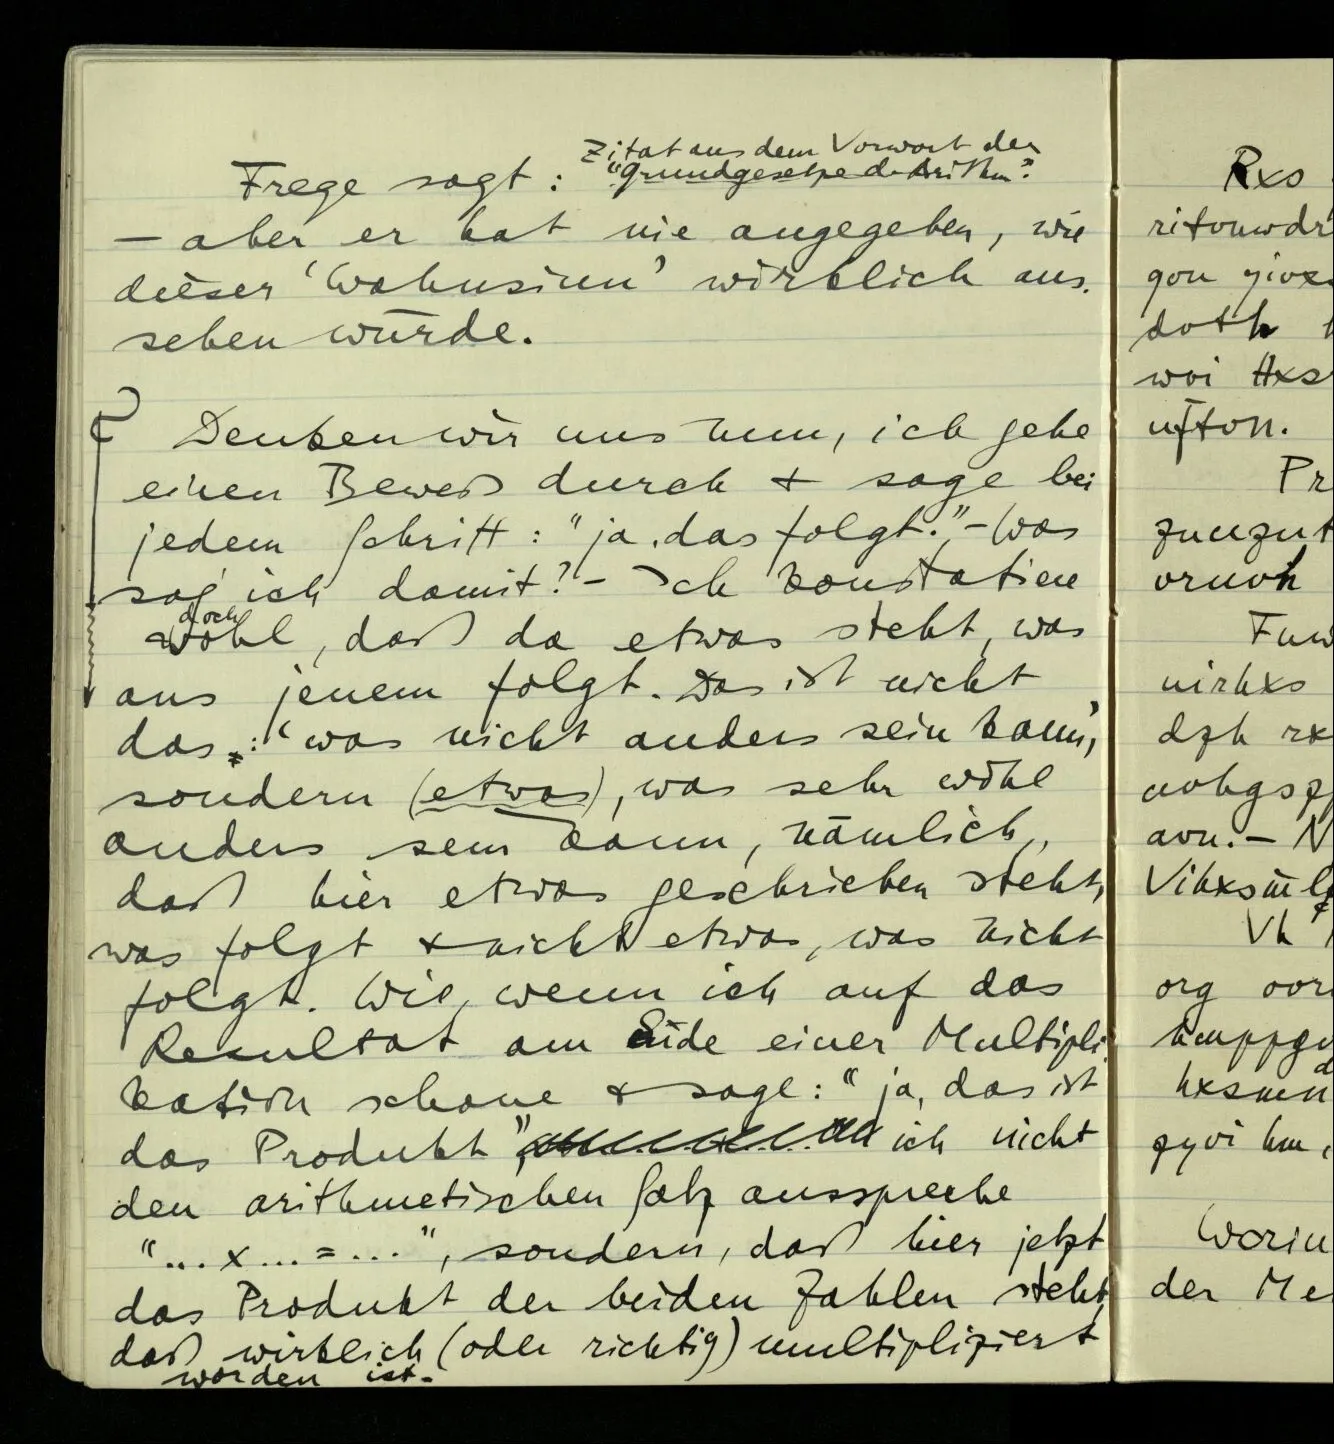 Zitat aus dem Vorwort der
Frege sagt: "Grundgesetze d. Arithm."
– aber er hat nie angegeben, wie
dieser 'Wahnsinn' wirklich aus-
sehen würde.
Denken wir uns nun, ich gehe
einen Beweis durch & sage bei
jedem Schritt: "ja, das folgt." – Was
sag' ich damit? – Ich konstatiere
doch
wohl, daß da etwas steht, was
aus jenem folgt. Das ist nicht
das: 'was nicht anders sein kann',
sondern (etwas), was sehr wohl
anders sein kann, nämlich,
daß hier etwas geschrieben steht,
was folgt & nicht etwas, was nicht
folgt. Wie, wenn ich auf das
Resultat am Ende einer Multipli-
kation schaue & sage: "ja, das ist
das Produkt", ich nicht
den arithmetischen Satz ausspreche
"... x ... = ...", sondern, daß hier jetzt
das Produkt der beiden Zahlen steht,
daß wirklich (oder richtig) multipliziert
worden ist.
Rxs
ritonwdr
gon
doth
woi
ufton.
Pr
zunzut
oruoh
Fuw
nirhxs
dzh rx
avn. – N
Vh
org
hxsmn
Worin
der Me